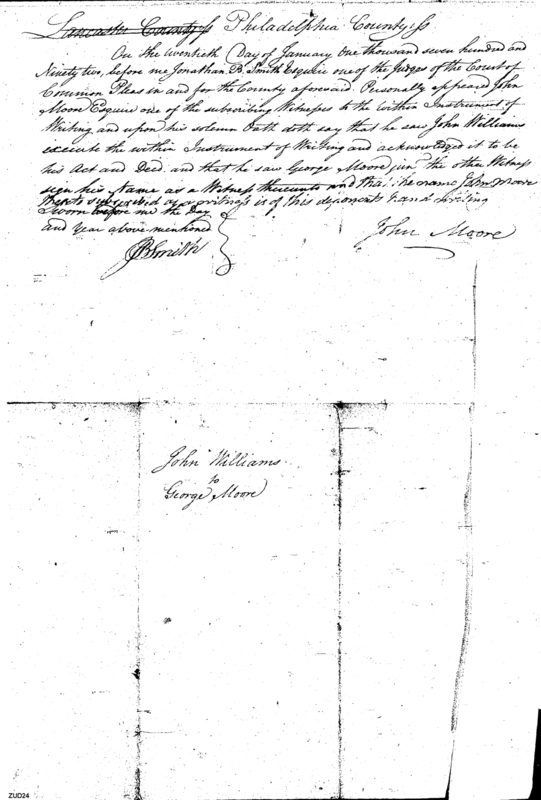 Lancaster County ss Philadelphia County ss
On the twentieth Day of January one thousand seven hundred and
Ninety two, before me Jonathan B. Smith Esquire one of the Judges of the Court of
Common Pleas in and for the County aforesaid. Personally appeared John
Moore Esquire one of the subscribing Witnesses to the within Instrument of
Writing and upon his solemn Oath doth say that he saw John Williams
execute the within Instrument of Writing and acknowledged it to be
his Act and Deed. and that he saw George Moore junr the other Witness
sign his Name as a Witness thereunto and that the name John Moore
thereto subscribed as a witness is of this deponents hand writing
Sworn before me the Day
and Year above mentioned
JBSmith
John Moore
John Williams
to
George Moore
ZUD24